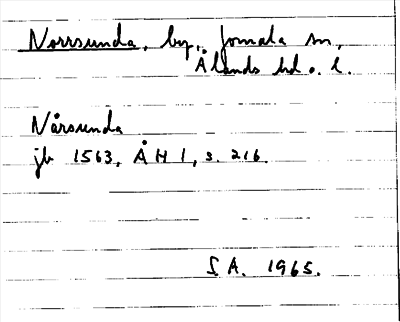 Norrsunda, by, Jomala sn,
Ålands hd o. l.
Nårsunda
jb 1563, ÅH 1, s. 216.
S A. 1965.